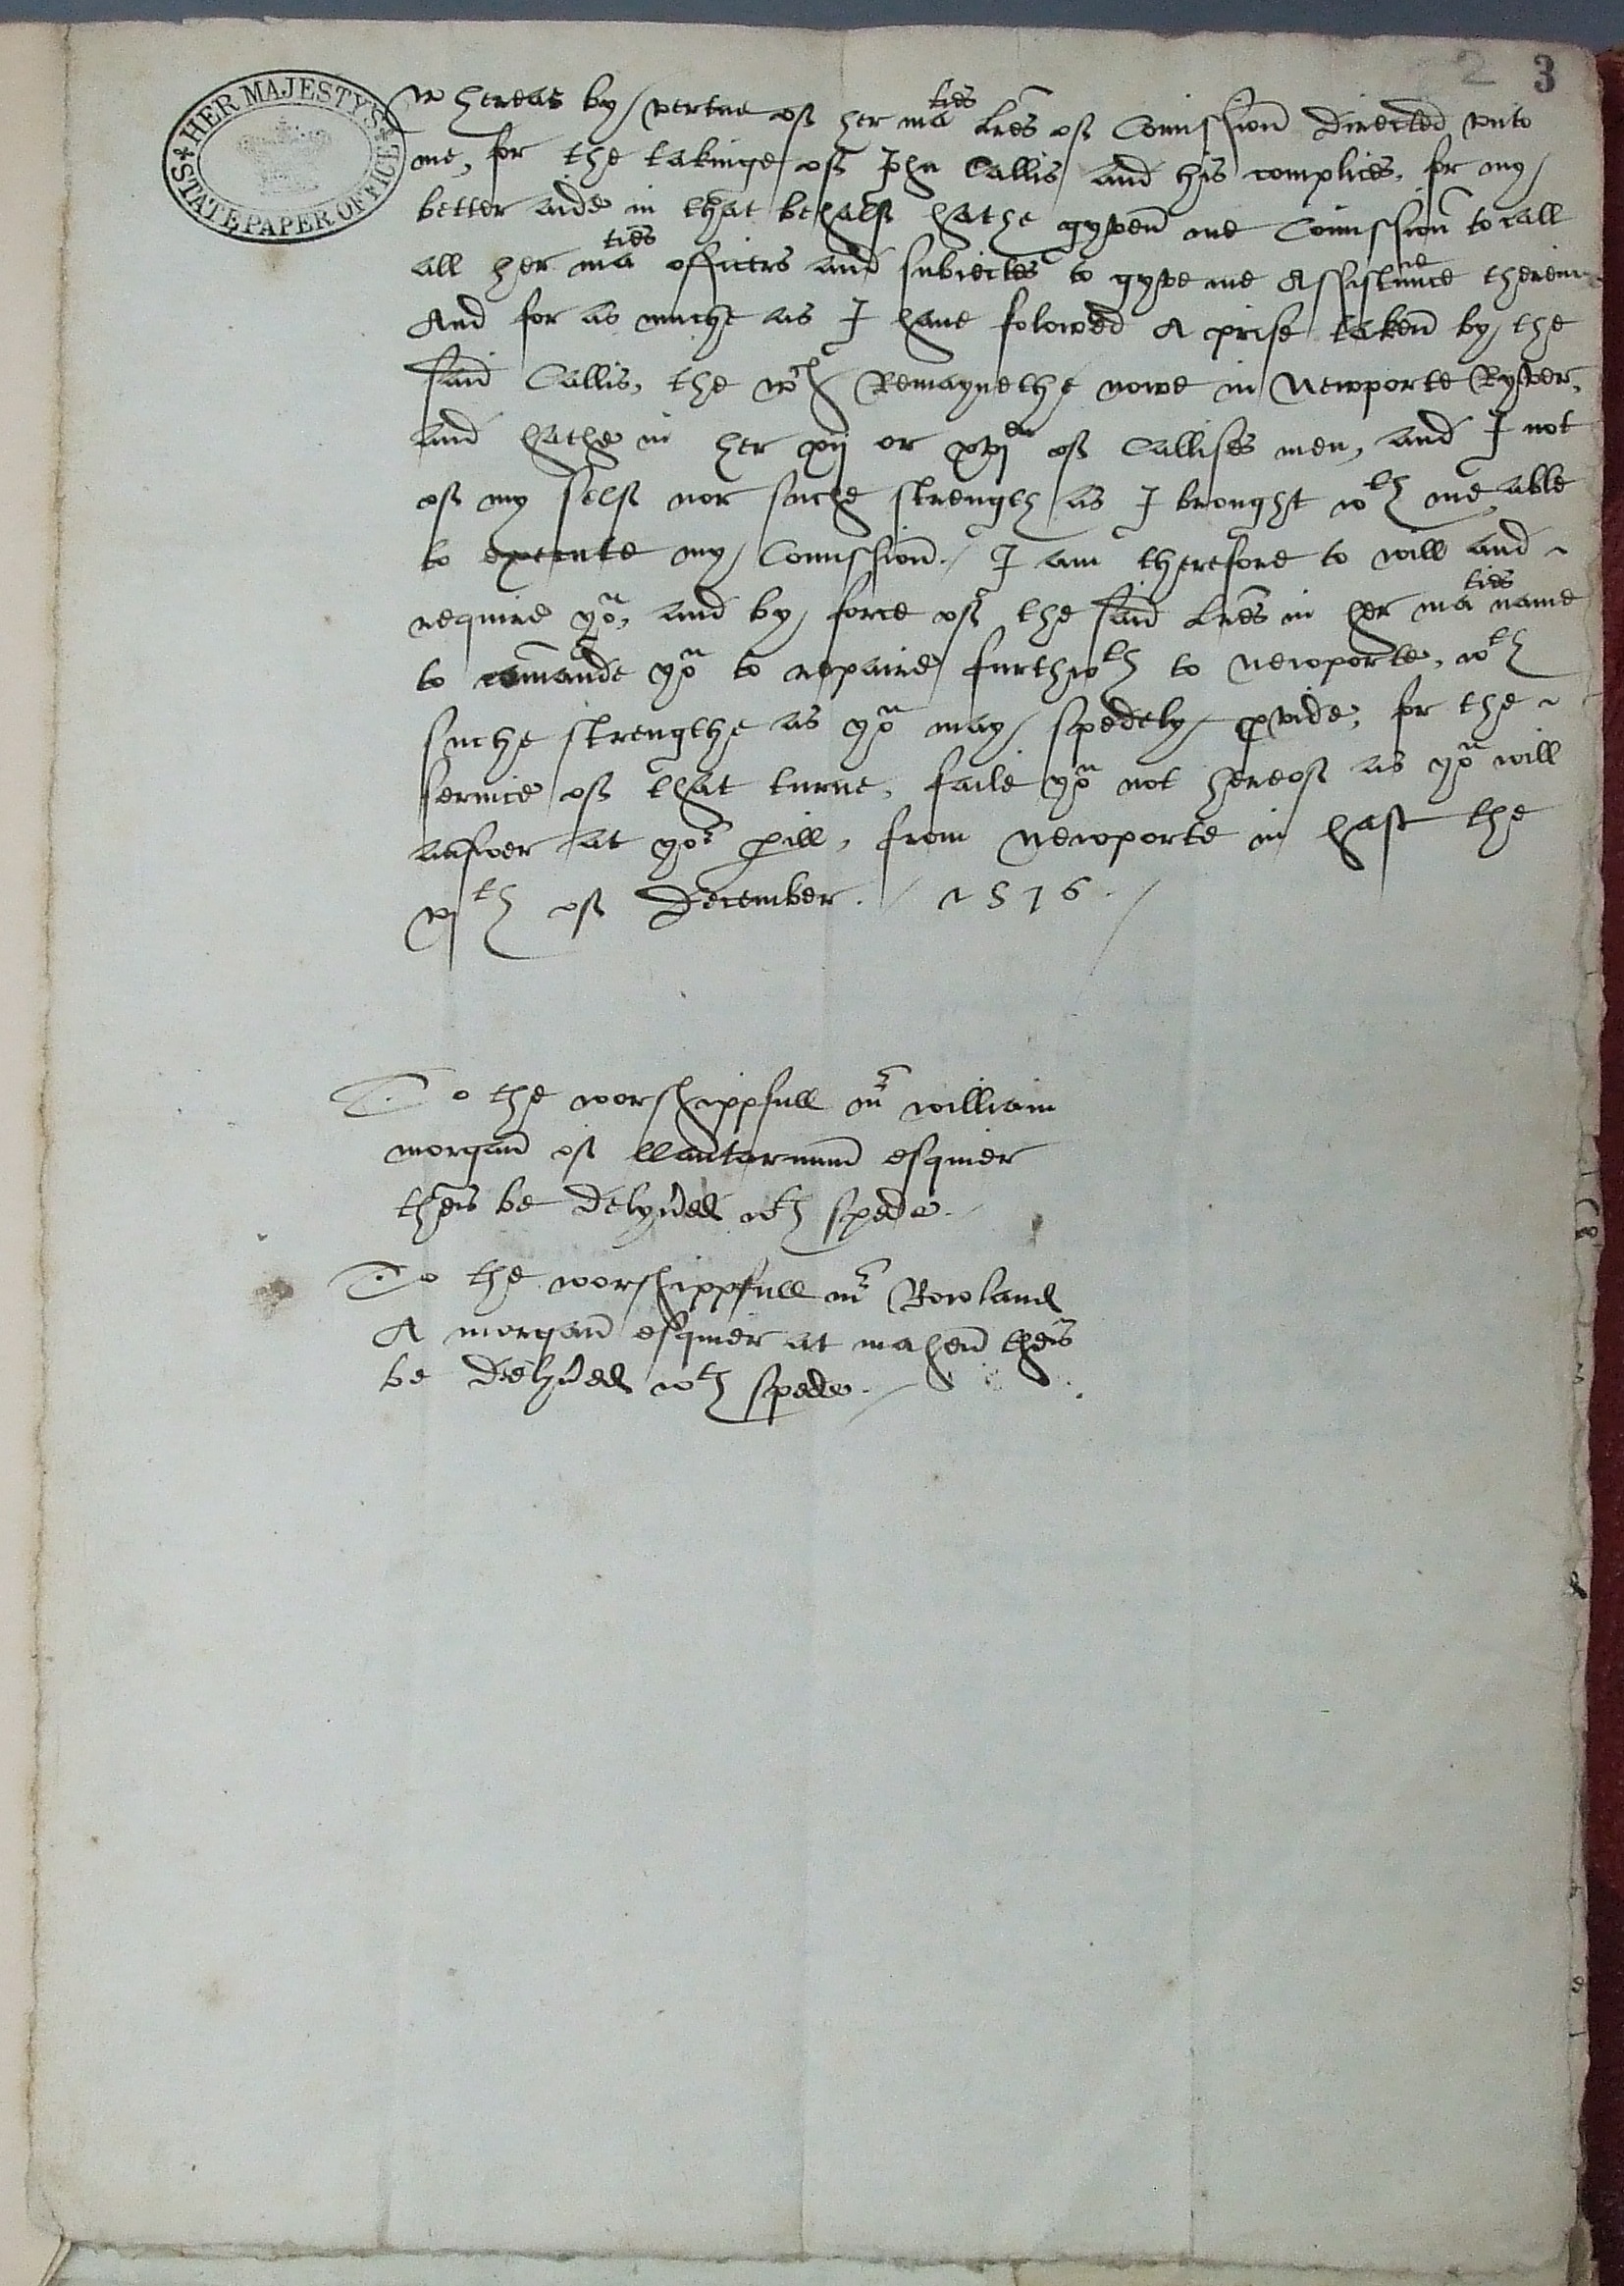 HER MAJESTY'S STATE PAPER OFFICE
2 3
Whereas by vertue of her maties lres of Comission directed vnto
me, for the takinge of John Callis and his complices, for my
better aide in that behalf hathe gyven me Comission to call
all her maties officers and subiectes to gyve me Assistance therein
And for as muche as I haue folowed A prise taken by the
said Callis, the wch Remaynethe nowe in Newporte Ryver,
and hathe in her xij or xvjen of Callises men, and I not
of my self nor suche strength as I brought wth me able
to execute my Comission. I am therefore to will and
require you, and by force of the said lres in her maties name
to comande you to repaire furthwth to Newporte, wth
suche strengthe as you may spedely pvide, for the
seruice of that turne, faile you not hereof as you will
answer at yor pill, from Newporte in hast the
vjth of December. 1576.
To the worshippfull mr william
morgan of llantarnam esquier
theis be delyued wth spede.
To the worshippfull mr Rowland
A morgan esquier at mahen theis
be delyued wth spede.